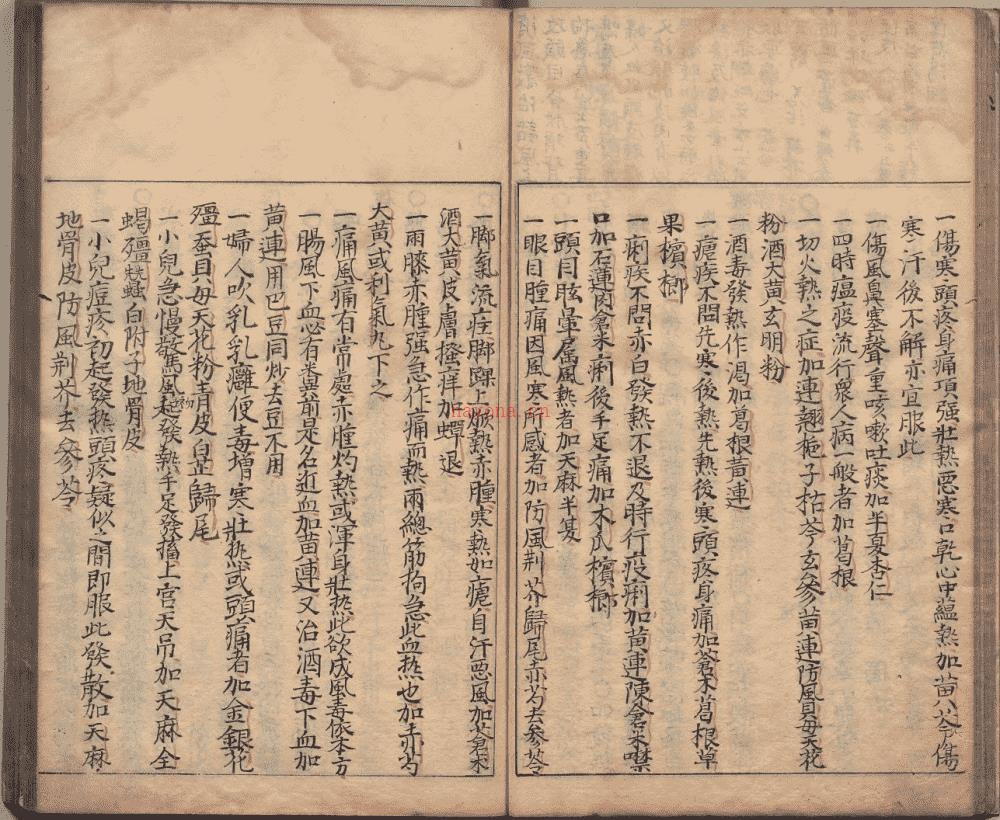 一傷寒頭疼身痛項強壯熱惡寒口乾心中蘊熱加黃芩傷
寒汗後不解亦宜服此
一傷風鼻塞聲重咳嗽吐痰加半夏杏仁
一四時瘟疫流行衆人病一般者加葛根
一切火熱之症加連翹梔子枯芩玄參黃連防風貝母天花
粉酒大黃玄明粉
一酒毒發熱作渴加葛根黃連
一瘧疾不問先寒後熱先熱後寒頭疼身痛加蒼朮葛根草
果檳榔
一痢疾不問赤白發熱不退及時行疫痢加黃連陳倉米噤
口加石蓮肉倉米痢後手足痛加木瓜檳榔
一頭目眩暈屬風熱者加天麻半夏
一眼目腫痛因風寒所感者加防風荆芥歸尾赤芍去參苓
一脚氣流症脚踝上焮熱赤腫寒熱如瘧自汗惡風加蒼朮
酒大黃皮膚搔痒加蟬退
一兩膝赤腫强急作痛而熱兩總筋拘急此血热也加生赤芍
大黃或利氣丸下之
一痛風痛有常處赤腫灼熱或渾身壯热此欲成風毒依本方
一腸風下血必有糞前是名近血加黃連又治酒毒下血加
黃連用巴豆同炒去豆不用
一婦人吹乳乳癰便毒增寒壯热或頭痛者加金銀花
殭蚕貝母天花粉青皮白芷歸尾
一小兒急慢驚風初起發熱手足發搐上宮天吊加天麻全
蝎殭蚕白附子地骨皮
一小兒痘疹初起發热頭疼疑似之間即服此發散加天麻
地骨皮防風荆芥去參苓
hayona.cn